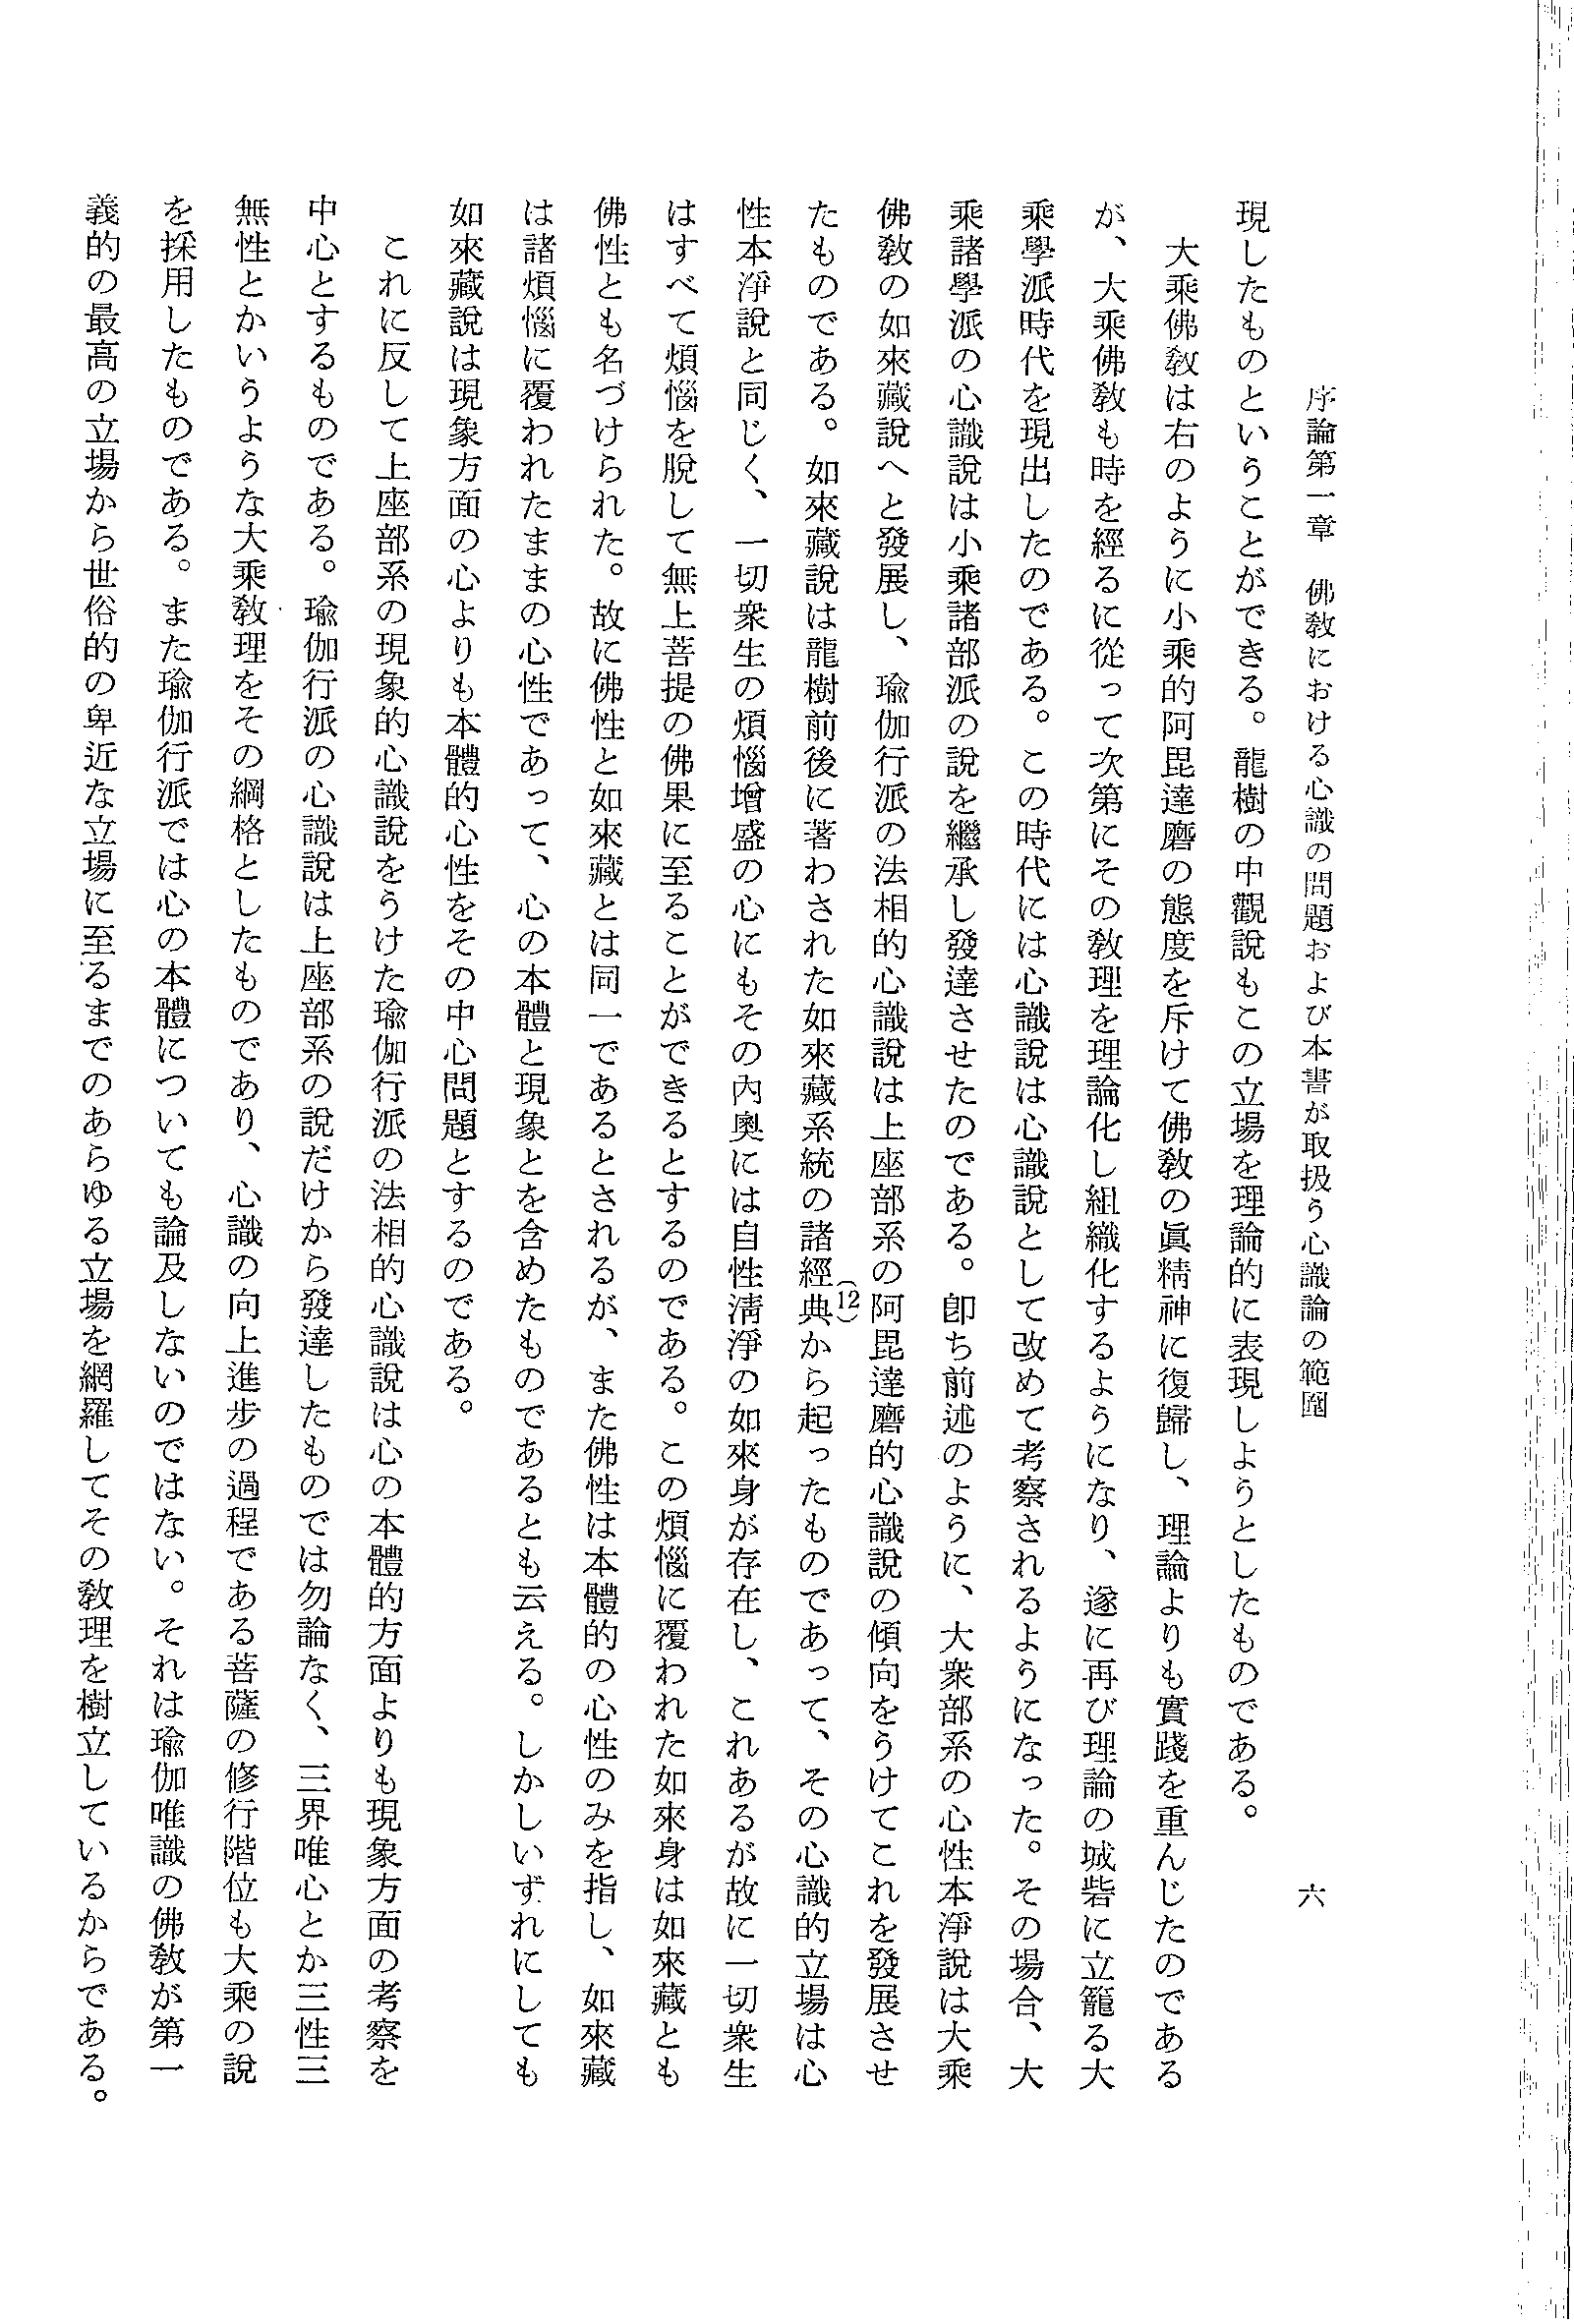 序論第一章　佛敎における心識の問題および本書が取扱う心識論の範圍
六
現したものということができる。龍樹の中觀説もこの立場を理論的に表現しようとしたものである。
大乘佛敎は右のように小乘的阿毘達磨の態度を斥けて佛敎の眞精神に復歸し、理論よりも實踐を重んじたのである
が、大乘佛敎も時を經るに從って次第にその敎理を理論化し組織化するようになり、遂に再び理論の城砦に立籠る大
乘學派時代を現出したのである。この時代には心識說は心識說として改めて考察されるようになった。その場合、大
乘諸學派の心識說は小乘諸部派の說を繼承し發達させたのである。卽ち前述のように、大衆部系の心性本淨說は大乘
佛敎の如來藏說へと發展し、瑜伽行派の法相的心識說は上座部系の阿毘達磨的心識說の傾向をうけてこれを發展させ
たものである。如來藏說は龍樹前後に著わされた如來藏系統の諸經典(12)から起ったものであって、その心識的立場は心
性本淨說と同じく、一切衆生の煩惱增盛の心にもその內奧には自性淸淨の如來身が存在し、これあるが故に一切衆生
はすべて煩惱を脫して無上菩提の佛果に至ることができるとするのである。この煩惱に覆われた如來身は如來藏とも
佛性とも名づけられた。故に佛性と如來藏とは同一であるとされるが、また佛性は本體的の心性のみを指し、如來藏
は諸煩惱に覆われたままの心性であって、心の本體と現象とを含めたものであるとも云える。しかしいずれにしても
如來藏說は現象方面の心よりも本體的心性をその中心問題とするのである。
これに反して上座部系の現象的心識說をうけた瑜伽行派の法相的心識說は心の本體的方面よりも現象方面の考察を
中心とするものである。瑜伽行派の心識說は上座部系の說だけから發達したものでは勿論なく、三界唯心とか三性三
無性とかいうような大乘敎理をその綱格としたものであり、心識の向上進步の過程である菩薩の修行階位も大乘の說
を採用したものである。また瑜伽行派では心の本體についても論及しないのではない。それは瑜伽唯識の佛敎が第一
義的の最高の立場から世俗的の卑近な立場に至るまでのあらゆる立場を網羅してその敎理を樹立しているからである。